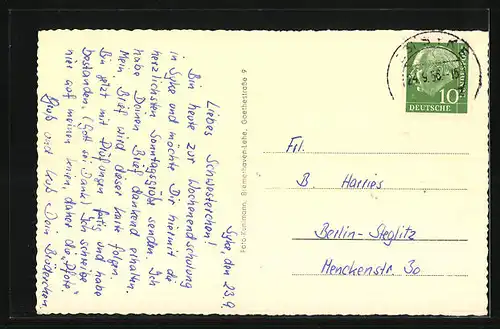 Syke, den 23.9.
Liebes Schwesterchen!
Bin heute zur Wochenendschulung
in Syke und möchte Dir hiermit die
herzlichsten Sonntagsgrüße senden. Ich
habe Deinen Brief dankend erhalten.
Mein Brief wird dieser Karte folgen.
Bin jetzt mit Prüfungen fertig und habe
bestanden. (Gott sei Dank) Ich schreibe
hier auf meinen Knien, daher die „Pfote".
Gruß und Kuß Dein Brüderchen
Foto-Kuhlmann, Bremerhaven-Lehe, Goethestraße 9
10
DEUTSCHE
Frl.
B. Harries
Berlin-Steglitz
Menckenstr. 30